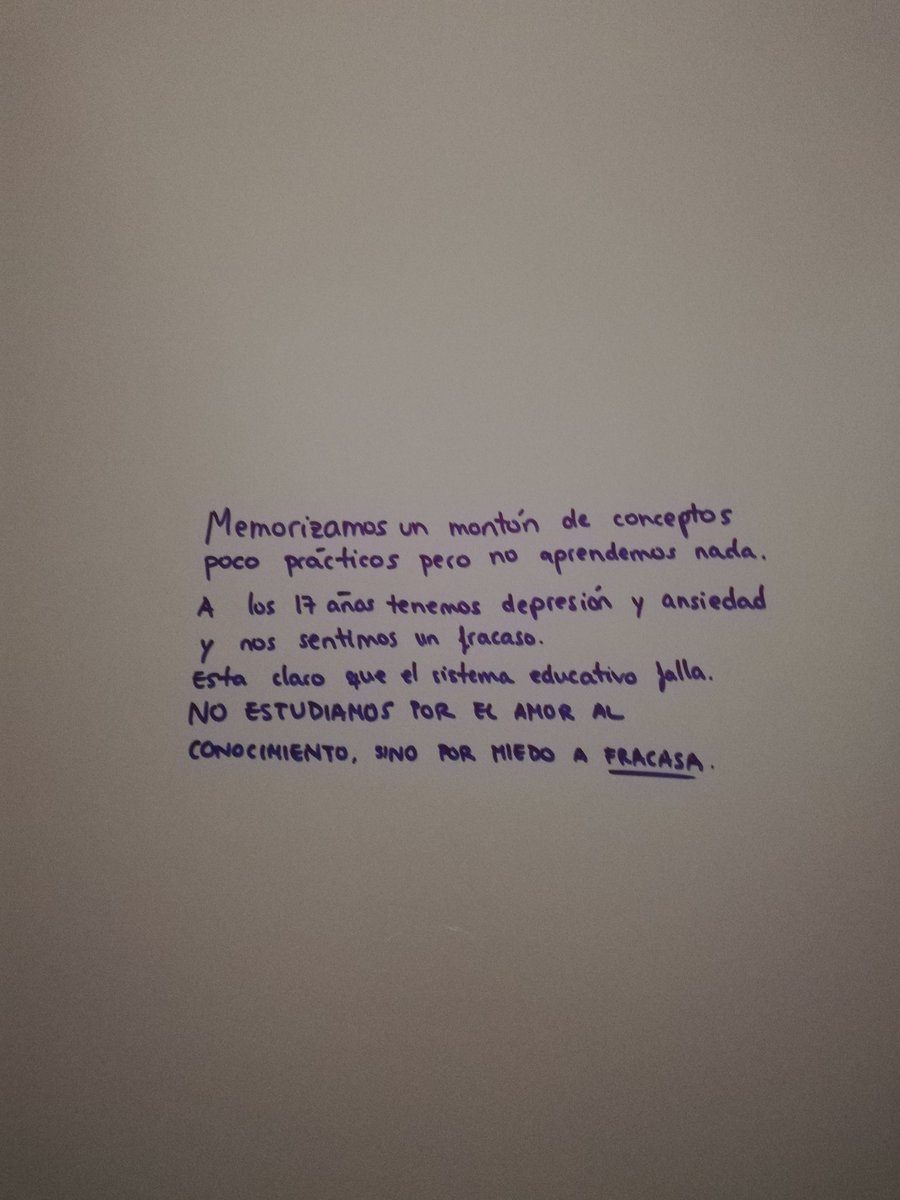 Memorizamos un montón de conceptos
poco prácticos pero no aprendemos nada.
A los 17 años tenemos depresión y ansiedad
y nos sentimos un fracaso.
Esta claro que el sistema educativo falla.
NO ESTUDIAMOS POR EL AMOR AL
CONOCIMIENTO, SINO POR MIEDO A FRACASA.